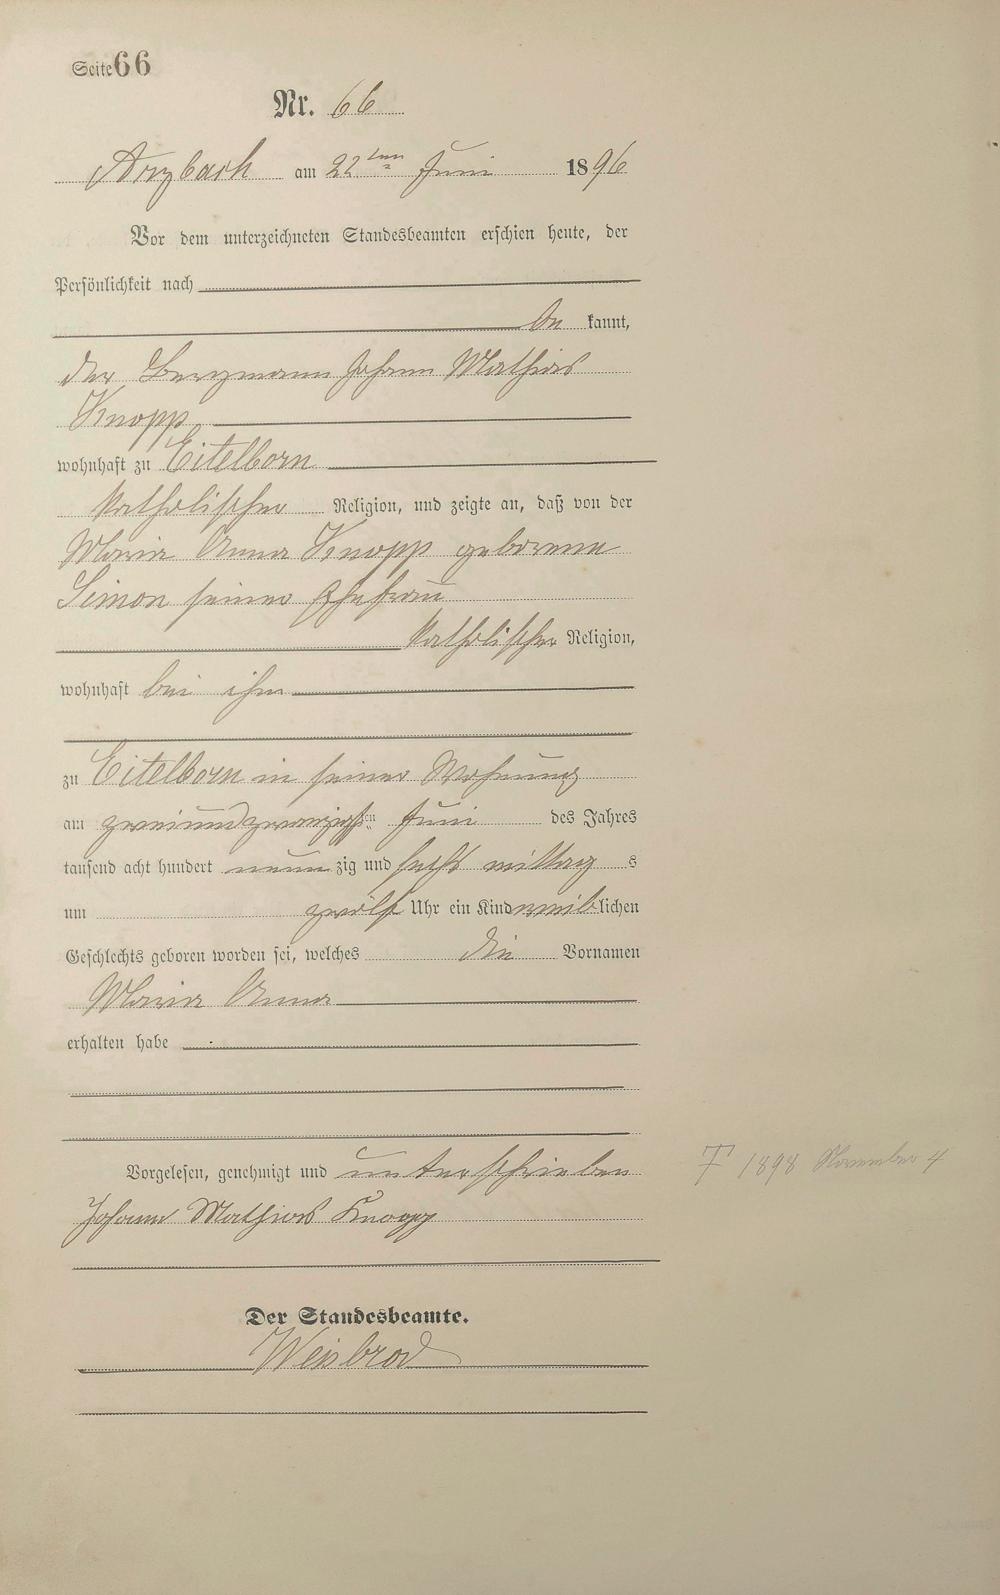 Seite 66
Nr. 66
Arzbach am 22ten Juni 1896
Vor dem unterzeichneten Standesbeamten erschien heute, der
Persönlichkeit nach
be kannt,
der Bergmann Johann Mathias
Knopp
wohnhaft zu Eitelborn
katholischer Religion, und zeigte an, daß von der
Maria Anna Knopp geborene
Simon seiner Ehefrau
katholischer Religion,
wohnhaft bei ihm
zu Eitelborn in seiner Wohnung
am zweiundzwanzigsten Juni des Jahres
tausend acht hundert neun zig und sechs mittag s
um zwölf Uhr ein Kind weiblichen
Geschlechts geboren worden sei, welches die Vornamen
Maria Anna
erhalten habe
Vorgelesen, genehmigt und unterschrieben
Johann Mathias Knopp
† 1898 November 4
Der Standesbeamte.
Weisbrod